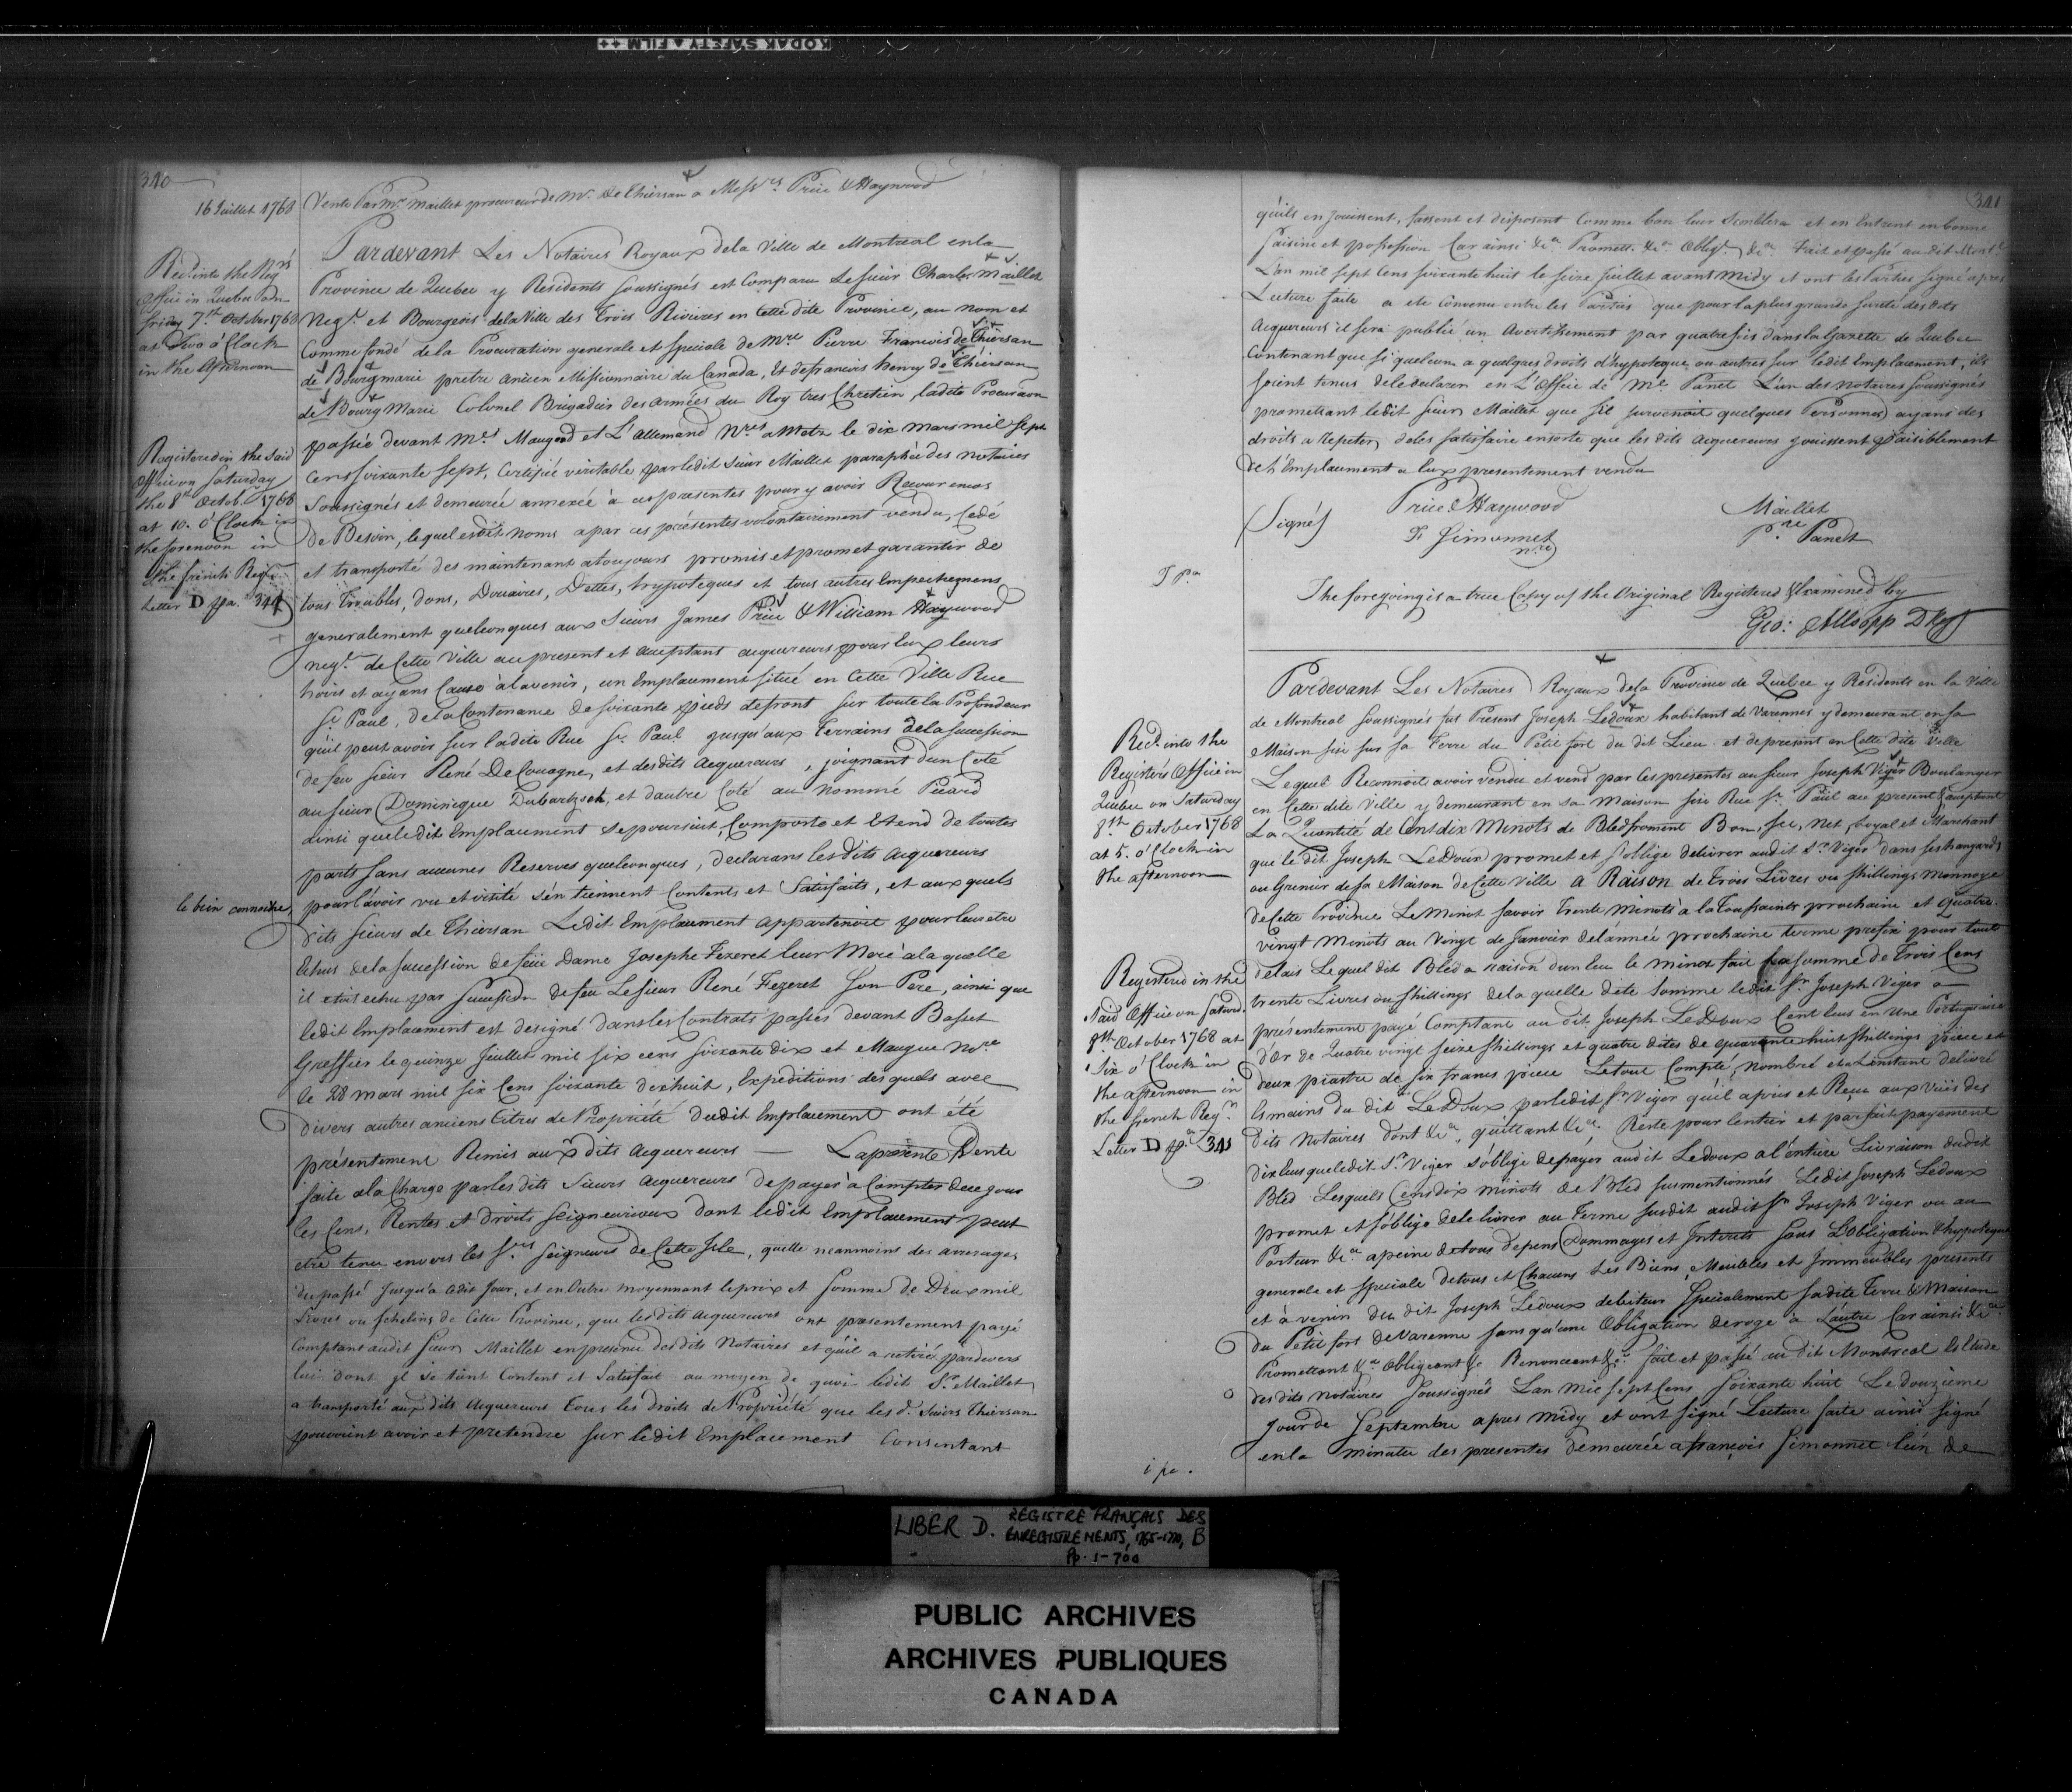 KODAK SAFETY FILM
340
16 Juillet 1768
Vente Par Mr. Maillet procureur de Mr. De Thiersan a Messrs. Price & Haywood
Recd. into the Regrs
Office in Quebec on
friday 7th. October 1768
at Two o'Clock
in the Afternoon
Registered in the said
Office on Saturday
the 8th Octobr. 1768
at 10. o'Clock in
the forenoon in
the french Regr.
Letter D pa. 341
le bien connoitre,
Pardevant Les Notaires Royaux dela Ville de Montreal en la
Province de Quebec y Residents soussignés est Comparu Le sieur Charles Maillet
Negt. et Bourgeois dela Ville des Trois Rivieres en Cette dite Province, au nom et
Comme fondé de la Procuration generale et speciale de Mre Pierre Francois de Thiersan
de Bourgmarie pretre ancien Missionnaire du Canada, Et de francois henry de Thiersan
de Bourg Marie Colonel Brigadier des armées du Roy tres Chretien, ladite Procuraon
passée devant Mes. Maugard et L'Allemand Nres. a Metz le dix mars mil sept
Cens soixante sept, Certifiée veritable par ledit sieur Maillet paraphée des notaires
Soussignés et demeurée annexée à ces presentes pour y avoir Recours en cas
De Besoin, lequel esdit noms a par ces présentes volontairement vendu, Cédé
et transporté des maintenant a toujours promis et promet garantir de
tous Troubles, dons, Douaires, Dettes, hypoteques et tous autres Empechemens
generalement quelconques aux Sieurs James Price & William Haywood
negt. de Cette Ville ace present et acceptant acquereurs pour Eux leurs
hoirs et ayans Cause à l'avenir, un Emplacement situé en Cette Ville Rue
St. Paul, dela Contenance de soixante pieds defront sur toute la Profondeur
qu'il peut avoir sur ladite Rue St. Paul jusqu'aux Terrains dela succession
de feu sieur René De Couagne, et desdits acquereurs, joignant d'un Coté
au sieur Dominique Dubartzsch, et dautre Coté au nommé Picard
ainsi que ledit Emplacement se poursuit, Comporte et Etend de toutes
parts sans aucunes Reserves quelconques, declarans lesdits acquereurs
pour l'avoir vu et visité s'en tiennent Contents et Satisfaits, et aux quels
dits sieurs de Thiersan Ledit Emplacement appartenoit pour leur etre
Echus dela succession de feüe Dame Josephe Fezeret leur Mere a la quelle
il etoit echu par Succession de feu Le sieur René Fezeret Son Pere, ainsi que
ledit Emplacement est designé dans les Contrats passés devant Basset
Greffier le quinze Juillet mil six cens soixante dix et Maugue Nore
le 28 mars mil six Cens soixante dixhuit, Expeditions des quels avec
divers autres anciens titres de Propriété dudit Emplacement ont été
présentement Remis aux dits Acquereurs — La présente Vente
faite ala Charge par les dits Sieurs acquereurs De payer à Compter de ce jour
les Cens, Rentes et droits seigneuriaux dont ledit Emplacement peut
etre tenu envers les Srs. Seigneurs de Cette Isle, quitte neanmoins des arrerages
du passé Jusqu'a cedit Jour, et en Outre moyennant le prix et Somme de Deux mil
Livres ou schelins de Cette Province, que lesdits acquereurs ont presentement payé
Comptant audit sieur Maillet en presence desdits Notaires et qu'il a retiré pardevers
lui dont il se tient Content et Satisfait au moyen de quoi ledit Sr. Maillet
a transporté aux dits Acquereurs Tous les droits de Propriété que les d. Sieurs Thiersan
pouvoient avoir et pretendre sur ledit Emplacement Consentant
341
qu'ils en jouissent, fassent et disposent Comme bon leur Semblera et en Entrent en bonne
saisine et possession Car ainsi &ca. Promett. &ca Obligt. &ca. Fait et passé audit Montl.
L'an mil sept Cens soixante huit le seize Juillet avant Midy et ont les Parties signé apres
Lecture faite a eté Convenu entre les Parties que pour la plus grande sureté des dits
Acquereurs il sera publié un Avertissement par quatre fois dans la Gazette de Quebec
Contenant que si quelcun a quelques droits d'hypoteque ou autres sur ledit Emplacement, ils
soient tenus dele declarer en L'Office de Me. Panet L'un des notaires soussignés
promettant ledit sieur Maillet que s'il survenoit quelques Personnes ayans des
droits a repeter, deles satisfaire ensorte que les dits acquereurs jouissent paisiblement
de l'Emplacement a Eux presentement vendu
(Signés)
Price & Haywood
Maillet
F. Simonnet
nre
Prre Panet
The foregoing is a true Copy of the Original Registered & Examined by
Geo: Allsopp D Reg
Recd. into the
Registers Office in
Quebec on Saturday
8th. October 1768
at 5. o'Clock in
the afternoon
Registered in the
said Office on Saturd.
8th. October 1768 at
Six o'Clock in
the afternoon in
the french Regr.
Letter D pa. 341
1 pa.
Pardevant Les Notaires Royaux dela Province de Quebec y Residents en la Ville
de Montreal soussignés fut Present Joseph Ledoux habitant de Varennes y demeurant en sa
Maison sise sur sa Terre du Petit fort du dit Lieu et depresent en Cette dite Ville
Lequel Reconnoit avoir vendu et vend par Ces presentes au sieur Joseph Viger Boulanger
en Cette dite Ville y demeurant en sa Maison sise Rue St. Paul ace present & acceptant
La Quantité de Cent dix Minots de Bled froment Bon, sec, Net, Loyal et Marchant
que le dit Joseph LeDoux promet et s'oblige delivrer audit Sr. Viger dans ses hangards
ou Grenier de sa Maison de Cette Ville a Raison de Trois Livres ou shillings monnoye
de Cette Province Le Minot savoir Trente Minots à la Toussaints prochaine et Quatre
vingt Minots au Vingt de Janvier de l'année prochaine terme prefix pour tout
delais Lequel dit Bled a raison d'un Ecu le minot fait la somme de Trois Cens
trente Livres ou shillings dela quelle dite Somme ledit Sr. Joseph Viger a
présentement payé Comptant au dit Joseph LeDoux Cent Ecus en Une Portugaise
d'Or de Quatre vingt seize shillings et quatre dites de quarante huit shillings piece et
deux piastre de six francs piece Letout Compté, Nombré et a L'instant delivré
Es mains du dit LeDoux par ledit Sr. Viger qu'il a pris et Reçu aux vües des
dits Notaires Dont &ca., quittant &ca. Reste pour l'entier et parfait payement
dix Ecus que ledit Sr. Viger s'oblige de payer audit Ledoux a l'entiere Livraison dudit
Bled Lesquels Cens dix minots de Bled susmentionnés Ledit Joseph Ledoux
promet et s'oblige dele livrer au Terme susdit audit Sr. Joseph Viger ou au
Porteur &ca a peine de tous depens Dommages et Interets sous L'obligation & hypoteque
generale et speciale de tous et Chacuns Les Biens, Meubles et Immeubles presents
et à venir du dit Joseph Ledoux debiteur Specialement sadite Terre & Maison
du Petit fort de Varenne sans qu'une Obligation deroge à L'autre Car ainsi &ca.
Promettant &ca Obligeant &c Renonceant &ca. fait et passé au dit Montreal Es Etude
des dits Notaires Soussignés L'an Mil Sept Cens soixante huit Le douzieme
Jour de Septembre apres Midy et ont signé Lecture faite ainsi signé
en la Minutte des presentes demeurée a François Simonnet l'un de
LIBER D. REGISTRE FRANÇAIS DES
ENREGISTREMENTS, 1765-1770, B
Pp. 1-700
PUBLIC ARCHIVES
ARCHIVES PUBLIQUES
CANADA